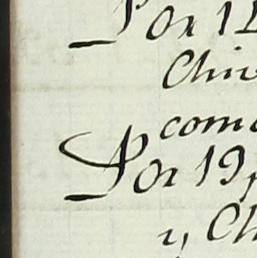 Por 1
Chi
com
Por 19
y, Ch